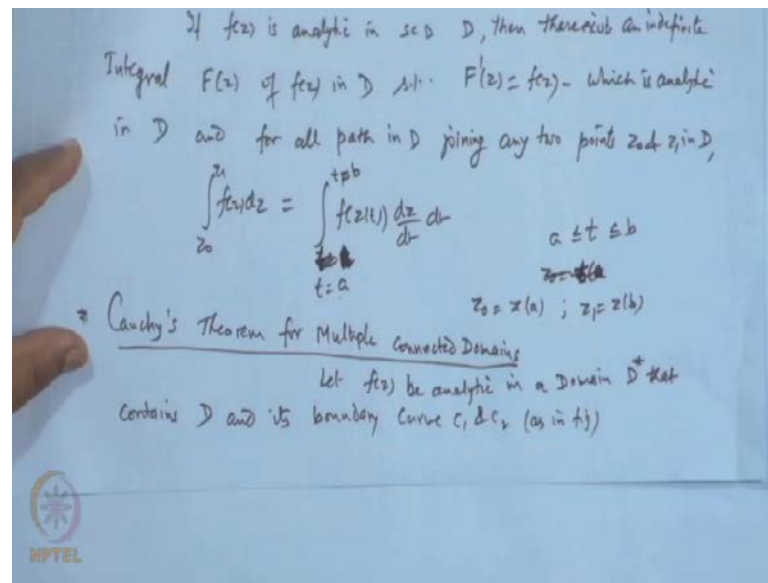 If f(z) is analytic in SCD D, then there exists an indefinite
Integral F(z) of f(z) in D s.t. F'(z) = f(z) - which is analytic
in D and for all path in D joining any two points z₀ & z₁ in D,
∫_{z₀}^{z₁} f(z)dz = ∫_{t=a}^{t=b} f(z(t)) dz/dt dt
a ≤ t ≤ b
z₀ = z(a) ; z₁ = z(b)
* Cauchy's Theorem for Multiple Connected Domains
Let f(z) be analytic in a Domain D* that
contains D and its boundary curve C₁ & C₂ (as in fig)
NPTEL